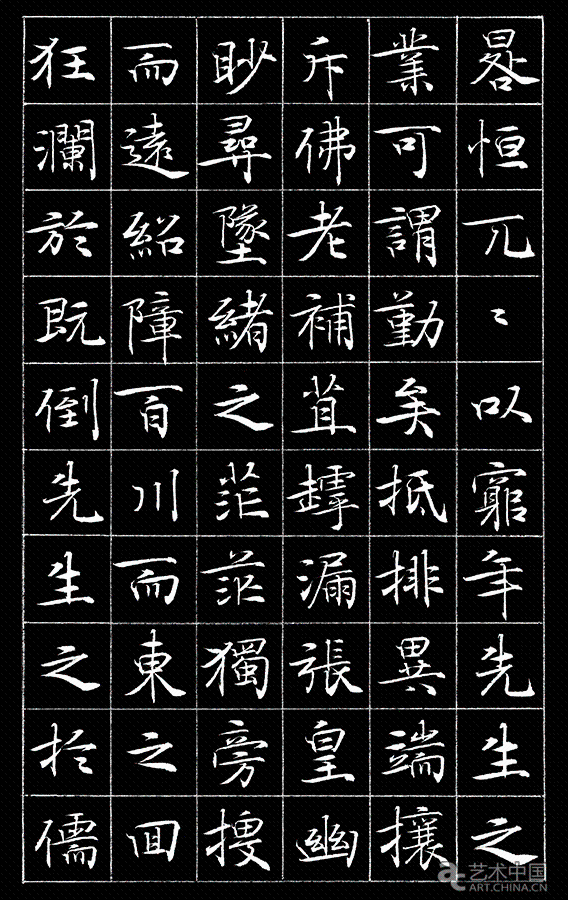 晷恒兀〻以窮年先生之
業可謂勤矣抵排異端攘
斥佛老補苴罅漏張皇幽
眇尋墜緒之茫茫獨旁搜
而遠紹障百川而東之囬
狂瀾於既倒先生之扵儒
艺术中国
ART.CHINA.CN